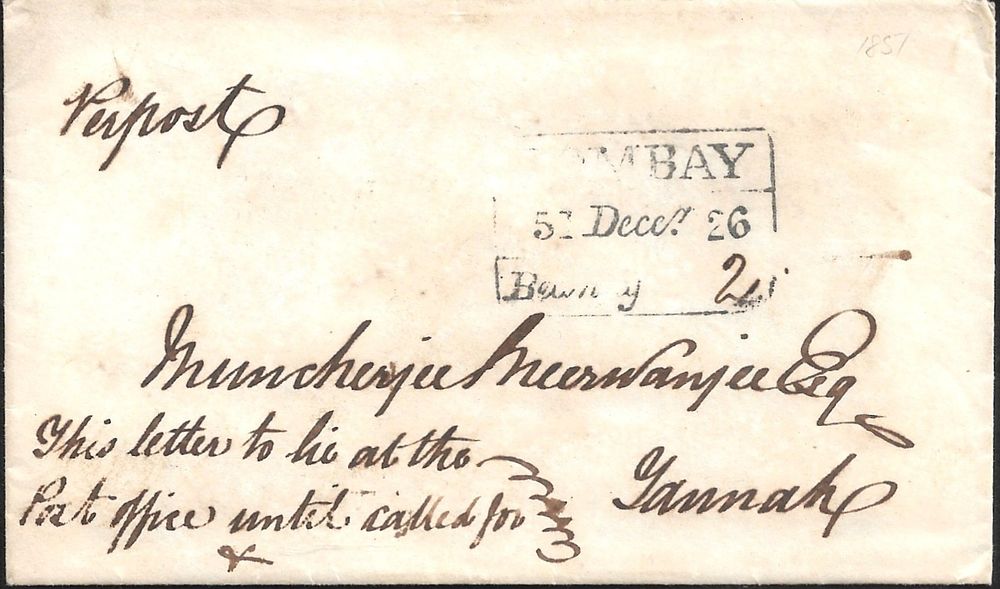 1851
Per post
BOMBAY
51 Decer. 26
2
Muncherjee Meerwanjee Esq
This letter to lie at the
Post office until called for
Tannah